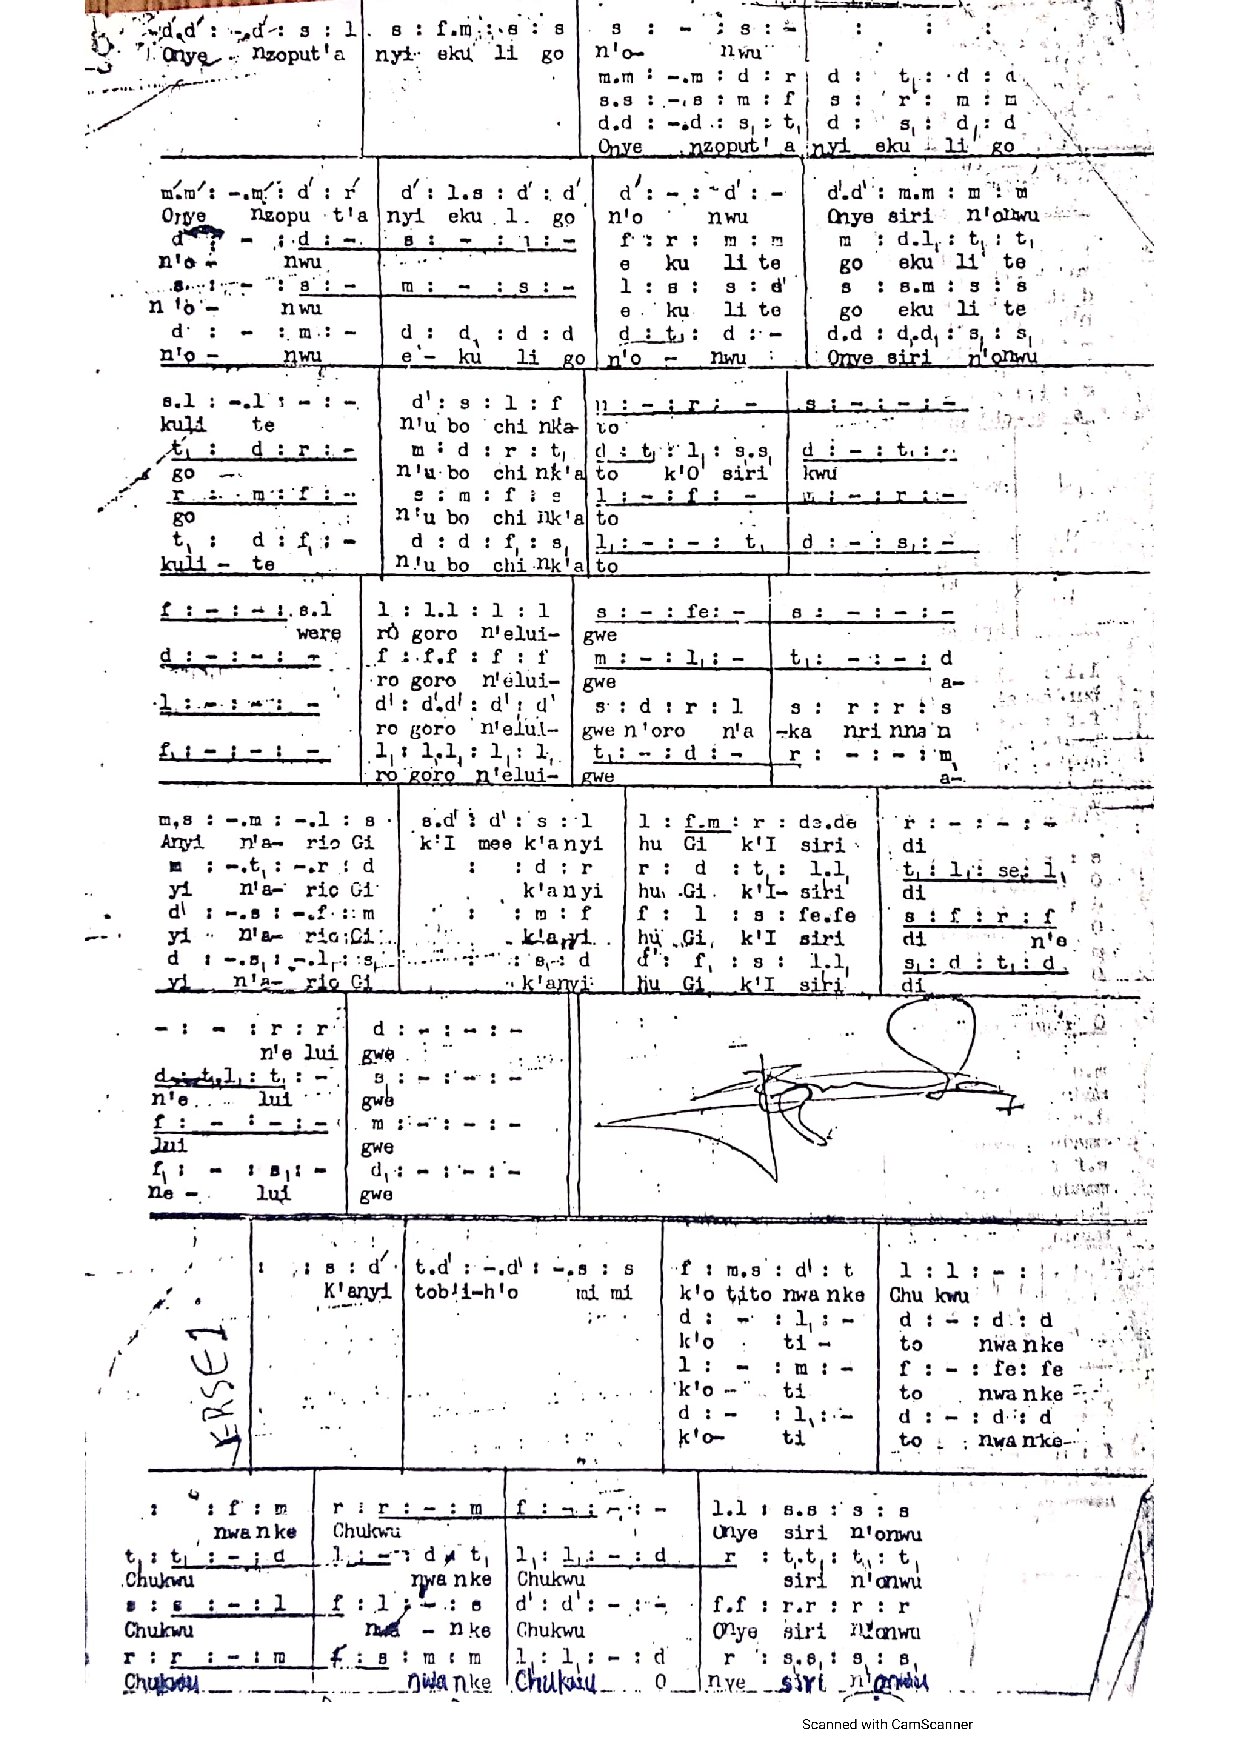 d.d' : -.d' : s : l   s : f.m : s : s   s : - : s : -   : : :
Onye nzoput'a nyi eku li go n'o- nwu
m.m : -.m : d : r   d : t₁ : d : d
s.s : -.s : m : f   s : r : m : m
d.d : -.d : s₁ : t₁   d : s₁ : d₁ : d
Onye nzoput' a nyi eku li go
m'm' : -.m' : d' : r'   d' : l.s : d' : d'   d' : - : d' : -   d'.d' : m.m : m : m
Onye nzopu t'a nyi eku l. go n'o nwu Onye siri n'onwu
d' : - : d : -   s : - : l : -   f : r : m : m   m : d.l₁ : t₁ : t₁
n'o - nwu e ku li te go eku li te
s : - : s : -   m : - : s : -   l : s : s : d'   s : s.m : s : s
n 'o - nwu e ku li te go eku li te
d : - : m : -   d : d₁ : d : d   d : t₁ : d : -   d.d : d₁.d₁ : s₁ : s₁
n'o - nwu e - ku li go n'o - nwu Onye siri n'onwu
s.l : -.l : - : -   d' : s : l : f   m : - : r : -   s : - : - : -
kuli te n'u bo chi nka- to
t₁ : d : r : -   m : d : r : t₁   d : t₁ : l₁ : s.s₁   d : - : t₁ : -
go - n'u bo chi nk'a to k'O siri kwu
r : - m : f : -   s : m : f : s   l : - : f : -   m : - : r : -
go n'u bo chi nk'a to
t₁ : d : f₁ : -   d : d : f₁ : s₁   l₁ : - : - : t₁   d : - : s₁ : -
kuli - te n'u bo chi nk'a to
f : - : - : s.l   l : l.l : l : l   s : - : fe : -   s : - : - : -
were ro goro n'elui- gwe
d : - : - : -   f : f.f : f : f   m : - : l₁ : -   t₁ : - : - : d
ro goro n'elui- gwe a-
l : - : - : -   d' : d'.d' : d' : d'   s : d : r : l   s : r : r : s
ro goro n'elui- gwe n'oro n'a -ka nri nna n
f₁ : - : - : -   l₁ : l₁.l₁ : l₁ : l₁   t₁ : - : d : -   r : - : - : m
ro goro n'elui- gwe a-
m,s : -.m : -.l : s   s.d' : d' : s : l   l : f.m : r : de.de   r : - : - : -
Anyi n'a- rio Gi k'I mee k'anyi hu Gi k'I siri di
m : -.t₁ : -.r : d   : : d : r   r : d : t₁ : l.l₁   t₁ : l₁ : se₁ : l₁
yi n'a- rio Gi k'anyi hu Gi k'I- siri di
d' : -.s : -.f : m   : : m : f   f : l : s : fe.fe   s : f : r : f
yi n'a- rio Gi k'a,yi hu Gi, k'I siri di n'e
d : -.s₁ : -.l₁ : s₁   : : s₁ : d   d' : f₁ : s : l.l₁   s₁ : d : t₁ : d
yi n'a- rio Gi k'anyi hu Gi k'I siri di
- : - : r : r   d : - : - : -
n'e lui gwe
d : t₁.l₁ : t₁ : -   s₁ : - : - : -
n'e lui gwe
f : - : - : -   m : - : - : -
lui gwe
f₁ : - : s₁ : -   d₁ : - : - : -
ne - lui gwe
VERSE 1
: : s : d'   t.d' : -.d' : -.s : s   f : m.s : d' : t   l : l : - :
K'anyi tob'i-h'o mi mi k'o tito nwa nke Chu kwu
d : - : l₁ : -   d : - : d : d
k'o ti - to nwa nke
l : - : m : -   f : - : fe : fe
k'o - ti to nwa nke
d : - : l₁ : -   d : - : d : d
k'o- ti to nwa nke-
: : f : m   r : r : - : m   f : - : - : -   l.l : s.s : s : s
nwa nke Chukwu Onye siri n'onwu
t₁ : t₁ : - : d   l₁ : - : d : t₁   l₁ : l₁ : - : d   r : t₁.t₁ : t₁ : t₁
Chukwu nwa nke Chukwu siri n'onwu
s : s : - : l   f : l : - : s   d' : d' : - : -   f.f : r.r : r : r
Chukwu nwa - nke Chukwu Onye siri n'onwu
r : r : - : m   f : s : m : m   l₁ : l₁ : - : d   r : s.s₁ : s₁ : s₁
Chukwu nwa nke Chukwu O nye siri n'onwu
Scanned with CamScanner